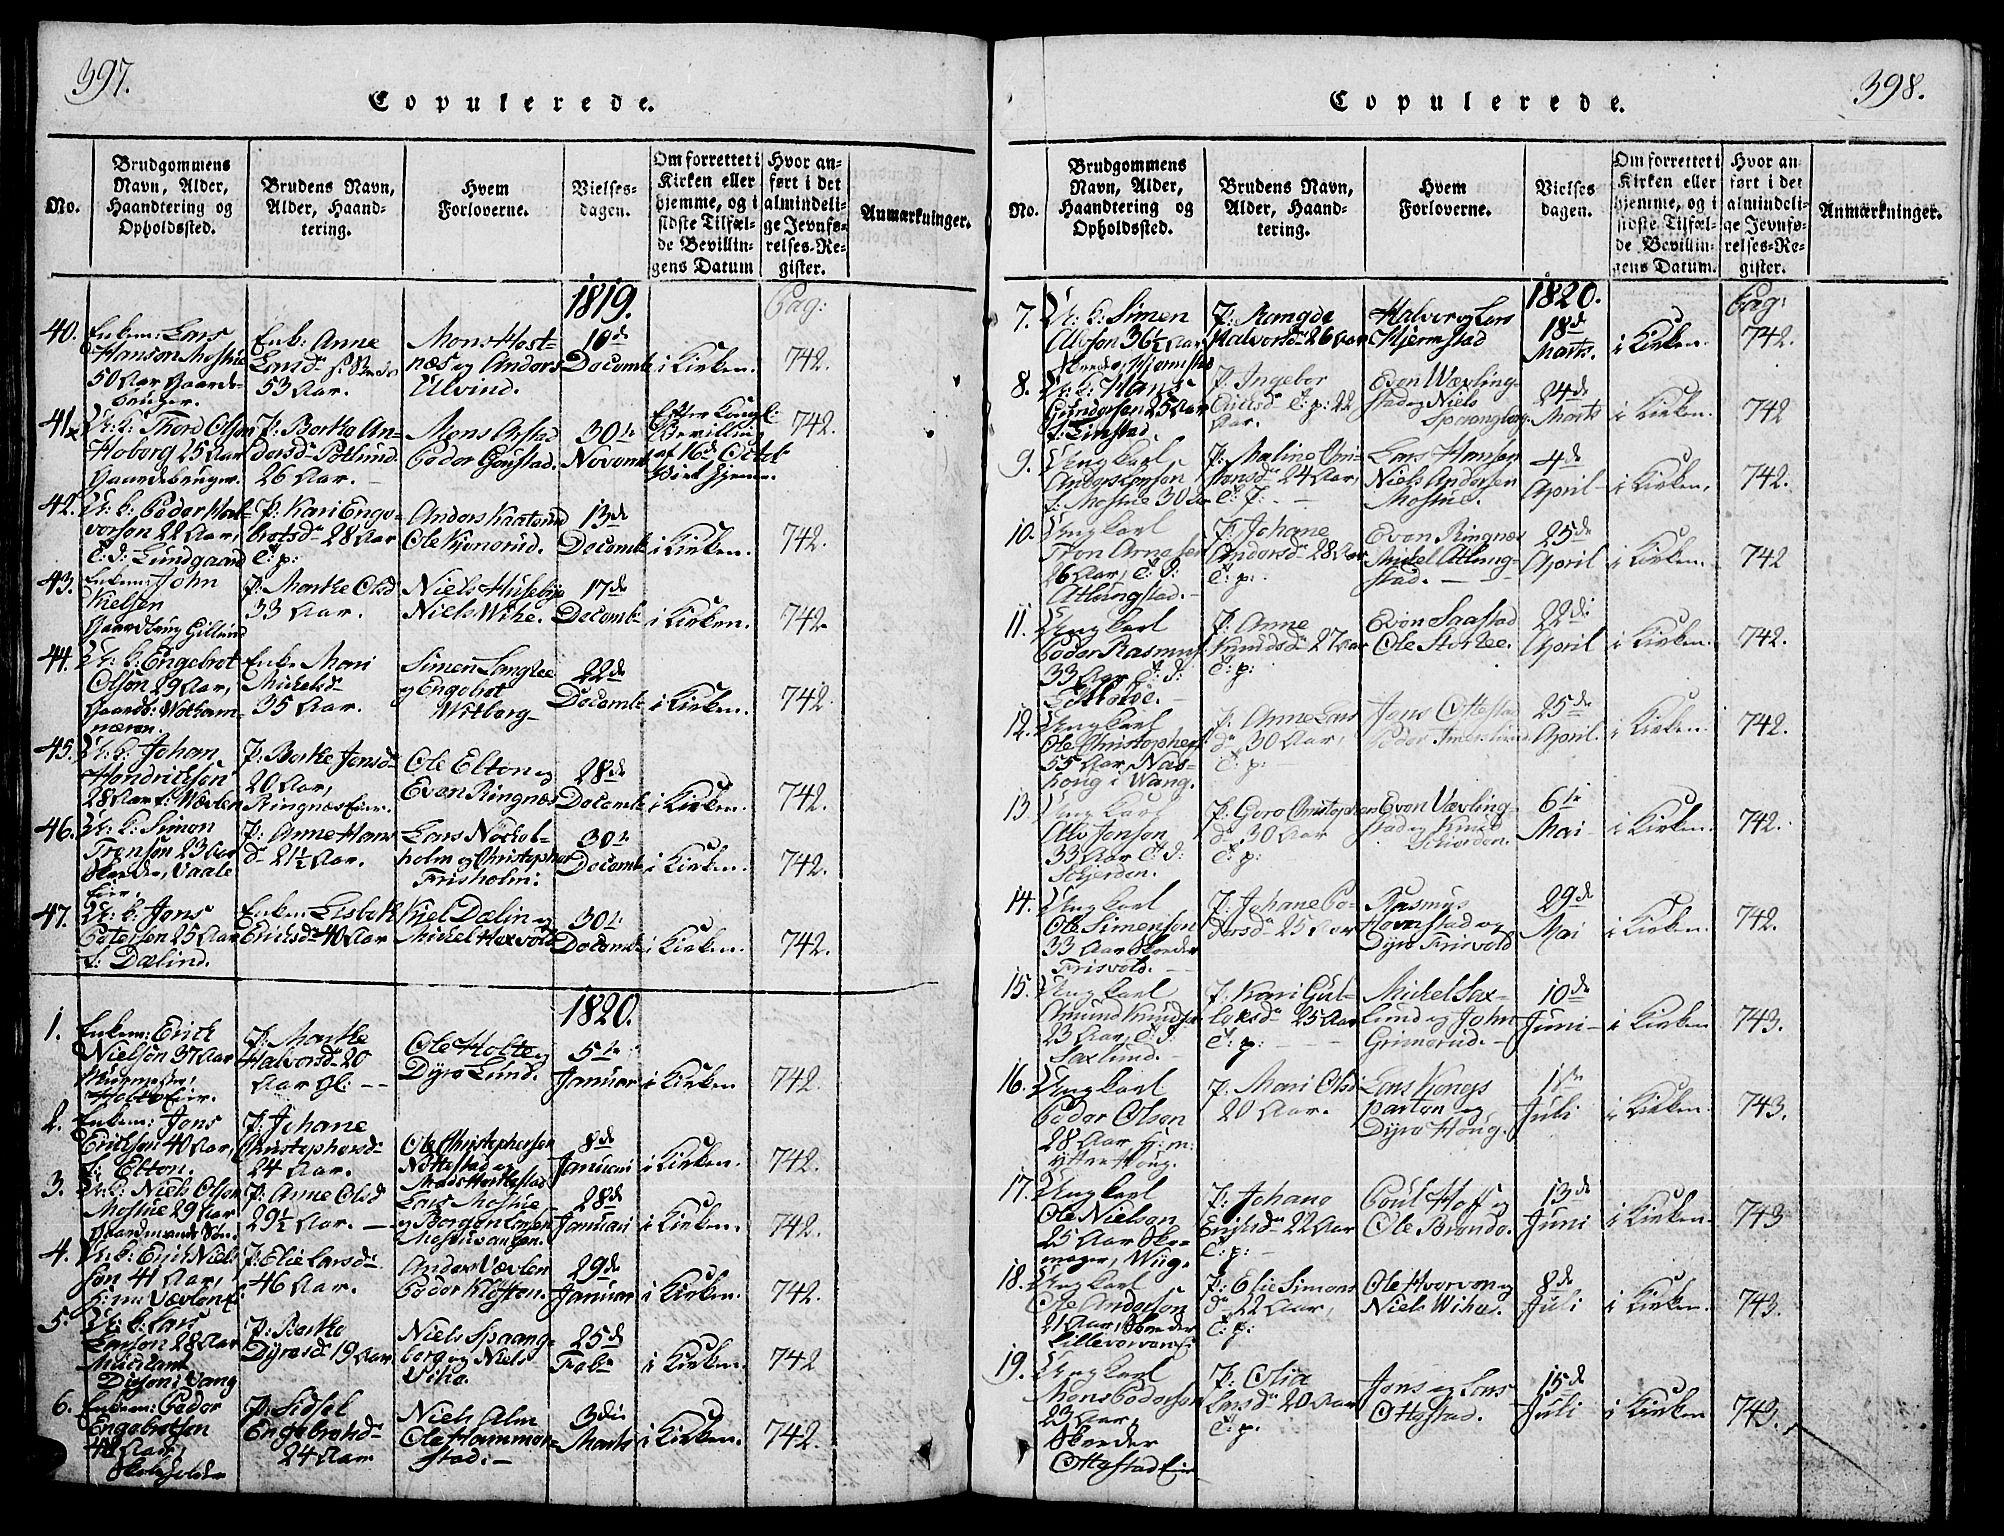 397.
Copulerede.
No.
Brudgommens Navn, Alder, Haandtering og Opholdssted.
Brudens Navn, Alder, Haandtering.
Hvem Forloverne.
Vielsesdagen.
Om forrettet i Kirken eller hjemme, og i sidste Tilfælde Bevillingens Datum
Hvor anført i det almindelige Jevnførelses-Register.
Anmærkninger.
1819.
Pag:
40.
Enkem: Lars
Hansen Moshue
50 Aar Gaardbruger.
Enk: Anne
Larsd
53 Aar.
Mons Host-
næs og Anders
Ulvind.
10de
Decembr
i Kirken.
742.
41.
U: k: Thord Olsen
Hoberg 25 Aar
Gaardbruger.
P: Berthe An-
dersd
26 Aar.
Mons Arstad
Peder Gaustad.
30te
Novembr
Efter Kongl:
Bevilling
af 16de Octob
742.
42.
U: k: Peder Hal-
vorsen 22 Aar,
T: J: Lundgaard
P: Kari Enge-
bretsd 28 Aar
T: p:
Anders Kaatorud
Ole Kjonerud.
13de
Decembr
i Kirken.
742.
43.
Enkem: John
Nielsen
P: Marthe Olsd
33 Aar.
Niels Huseby
Niels Wihe.
17de
Decembr
i Kirken.
742.
44.
U: k: Engebret
Olsen 29 Aar,
Enk: Mari
Mickelsd
35 Aar.
Simen Sanglee
og Engebret
Witberg
22de
Decembr
i Kirken.
742.
45.
U: k: Johan
Hendricksen
28 Aar f: Wævlen
P: Berthe Jensd
20 Aar,
Ringnæs Eier.
Ole Elton og
Even Ringnæs
28de
Decembr
i Kirken.
742.
46.
U: k: Simen
Tronsen 23 Aar
P: Anne Hans
d 21½ Aar.
Lars Nøckel-
holm og Christopher
Frisholm:
30te
Decembr
i Kirken.
742.
47.
U: k: Jens
Petersen 25 Aar
f: Dælind.
Enkem: Lisbeth
Ericksd 40 Aar
Kiel Dælin og
Mickel Hoxvold
30te
Decembr
i Kirken.
742.
1820.
1.
Enkem: Erick
Nielsen 37 Aar
P: Marthe
Halvorsd 20
Aar gl:
Ole Holte og
Dyre Lund.
5te
Januar
i Kirken
742.
2.
Enkem: Jens
Ericksen 40 Aar,
f: Elton.
P: Johane
Christophersd
24 Aar.
Ole Christophersen
Nøttestad og
8de
Januari
i Kirken.
742.
3.
U: k: Niels Olsen
Moshue 29 Aar
P: Anne Olsd
29½ Aar.
Lars Moshue
28de
Januari
i Kirken.
742.
4.
U: k: Erick Niels
sen 41 Aar,
P: Elie Larsd
46 Aar.
Anders Wævlen
Peder Kløften.
29de
Januar
i Kirken.
742.
5.
U: k: Lars
Larsen 28 Aar
P: Berthe
Dyresd 19 Aar
Niels Spaang-
berg og Niels
Wihe.
25de
Febr
i Kirken.
742
6.
Enkem: Peder
Engebretsen
48 Aar,
P: Sidsel
Engebretsd
24 Aar
Niels Alm
Ole Hommer-
stad:
3die
Marts
i Kirken.
742.
398.
Copulerede.
No.
Brudgommens Navn, Alder, Haandtering og Opholdssted.
Brudens Navn, Alder, Haandtering.
Hvem Forloverne.
Vielses dagen.
Om forrettet i Kirken eller hjemme, og i sidste Tilfælde Bevillingens Datum.
Hvor anført i det almindelige Jevnførelses-Register.
Anmærkninger.
1820.
Pag:
7.
U: k: Simen
Alvsen 36½ Aar
P: Rangde
Halvorsd 26 Aar
Halvor og Lars
Hjermstad
18de
Marts.
i Kirken.
742.
8.
U: k: Hans
Gundersen 25 Aar
f: Linstad.
P: Ingebor
Ericksd T: p: 22
Aar.
Even Wævling-
stad og Niels
Spaangberg.
24de
Marts
i Kirken.
742
9.
Ungkarl
Anders Larsen
f: Moshue 30 Aar
P: Maline Chri-
stensd 24 Aar,
Lars Hansen
Niels Andersen
Moshue.
4de
April
i Kirken,
742.
10.
Ungkarl
Tron Arnesen
26 Aar, T: J:
Atlungstad.
P: Johane
Andersd 28 Aar
T: p:
Even Ringnæs
Mickel Atlung-
stad.
25de
April
i Kirken.
742
11.
Ungkarl
Peder Rasmus
33 Aar T: J:
P: Anne
Knudsd 27 Aar
T: p:
Even Saastad
Ole Storlee.
22de
April
i Kirken.
742.
12.
Ungkarl
Ole Christophers:
55 Aar, Nas-
houg i Wang.
P: Anne Lars
d 30 Aar,
T: p:
Jens Ottestad
25de
April.
i Kirken.
742.
13
Ungkarl
Alv Jensen
33 Aar T: J:
Schjerden.
P: Goro Christophers
d 30 Aar
T: p:
Even Wævling-
stad og Knud
Schjerden.
6te
Mai
i Kirken.
742.
14.
Ungkarl
Ole Simensen
33 Aar Skræder
Frisvold.
P: Johane Pe-
dersd 25 Aar
Rasmus
Hovenstad og
Dyre Frisvold
29de
Mai
i Kirken.
742.
15.
Ungkarl
Amund Knudsen
23 Aar, T: J:
Saxlund.
P: Kari Gul-
lecksd 25 Aar
T: p:
Mickel Sax-
lund og John
Grimerud.
10de
Juni
i Kirken
743.
16.
Ungkarl
Peder Olsen
28 Aar
P: Mari Olsd
20 Aar.
Lars Kongs
parten og
Dyre Houg.
1ste
Juli
i Kirken.
743.
17.
Ungkarl
Ole Nielsen
25 Aar Sko-
mager, Wiig.
P: Johane
Ericksd 22 Aar
T: p:
Poul Hoff og
Ole Brendo.
13de
Juni
i Kirken
743
18.
Ungkarl
Ole Andersen
21 Aar, Skræder
P: Elie Simens
d 22 Aar,
T: p:
Ole Hvorven og
Niels Wihe.
8de
Juli
i Kirken.
743.
19.
Ungkarl
Mons Pedersen
23 Aar,
Skræder
Ottestad Eie
P: Olia
Larsd 20 Aar
T: p.
Jens og Lars
Ottestad.
15de
Juli
i Kirken
743.